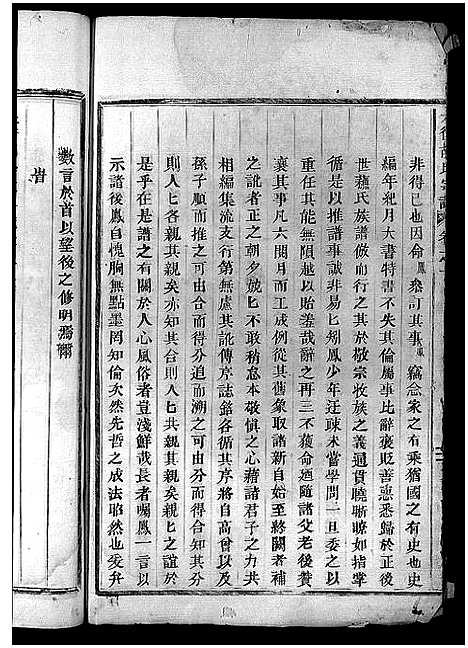 非得已也因命鳳叅訂其事鳳竊念家之有乘猶國之有史也史
編年紀月大書特書不失其倫屬事比辭褒貶善惡悉歸於正後
世蘓氏族譜倣而行之其於敬宗收族之義週貫曉暢瞭如指掌
循是以推譜事誠非易匕矧鳳少年迂疎未嘗學問一旦委之以
重任其能無隕越以貽羞哉辭之再三不獲命廼隨諸父老後贊
襄其事凡六閱月而工成例從其舊象取諸新自始至終闕者補
之訛者正之朝夕兢匕不敢稍怠本敬慎之心藉諸君子之力共
相編集流支行第無慮其訛傳序誌銘各循其序將自高曾以及
孫子順而推之可由合而得分追而溯之可由分而得合由分之
則人匕各親其親矣亦知其合則人匕共親其親矣親匕之誼於
是乎在是譜之有關於人心風俗者豈淺鮮哉長者囑鳳一言以
示諸後鳳自愧胸無點墨罔知倫次然先哲之成法昭然也爰弁
數言於首以望後之修明焉爾
旹